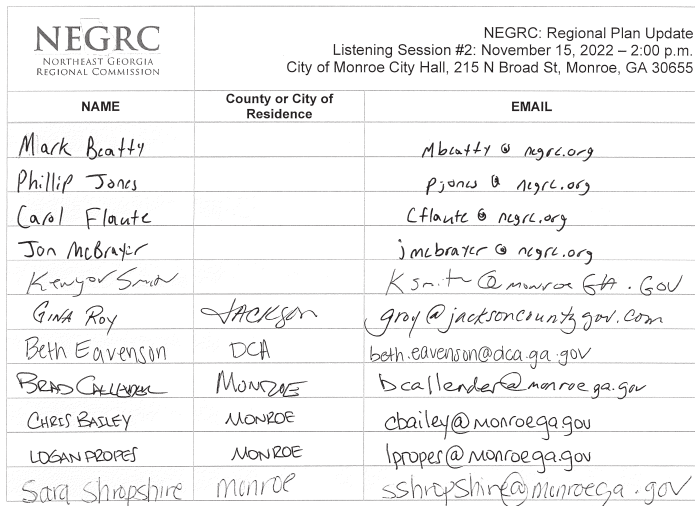 NEGRC
NORTHEAST GEORGIA
REGIONAL COMMISSION
NEGRC: Regional Plan Update
Listening Session #2: November 15, 2022 – 2:00 p.m.
City of Monroe City Hall, 215 N Broad St, Monroe, GA 30655
NAME County or City of Residence EMAIL
Mark Beatty Mbeatty @ negrc.org
Phillip Jones pjones @ negrc.org
Carol Flaute Cflaute @ negrc.org
Jon McBrayer jmcbrayer @ negrc.org
Ksmith@monroeGA.GOV
GINA ROY JACKSON groy@jacksoncountygov.com
Beth Eavenson DCA beth.eavenson@dca.ga.gov
BRAD CALLENDER MONROE bcallender@monroega.gov
CHRIS BAILEY MONROE cbailey@monroega.gov
LOGAN PROPES MONROE lpropes@monroega.gov
Sara Shropshire monroe sshropshire@monroega.gov